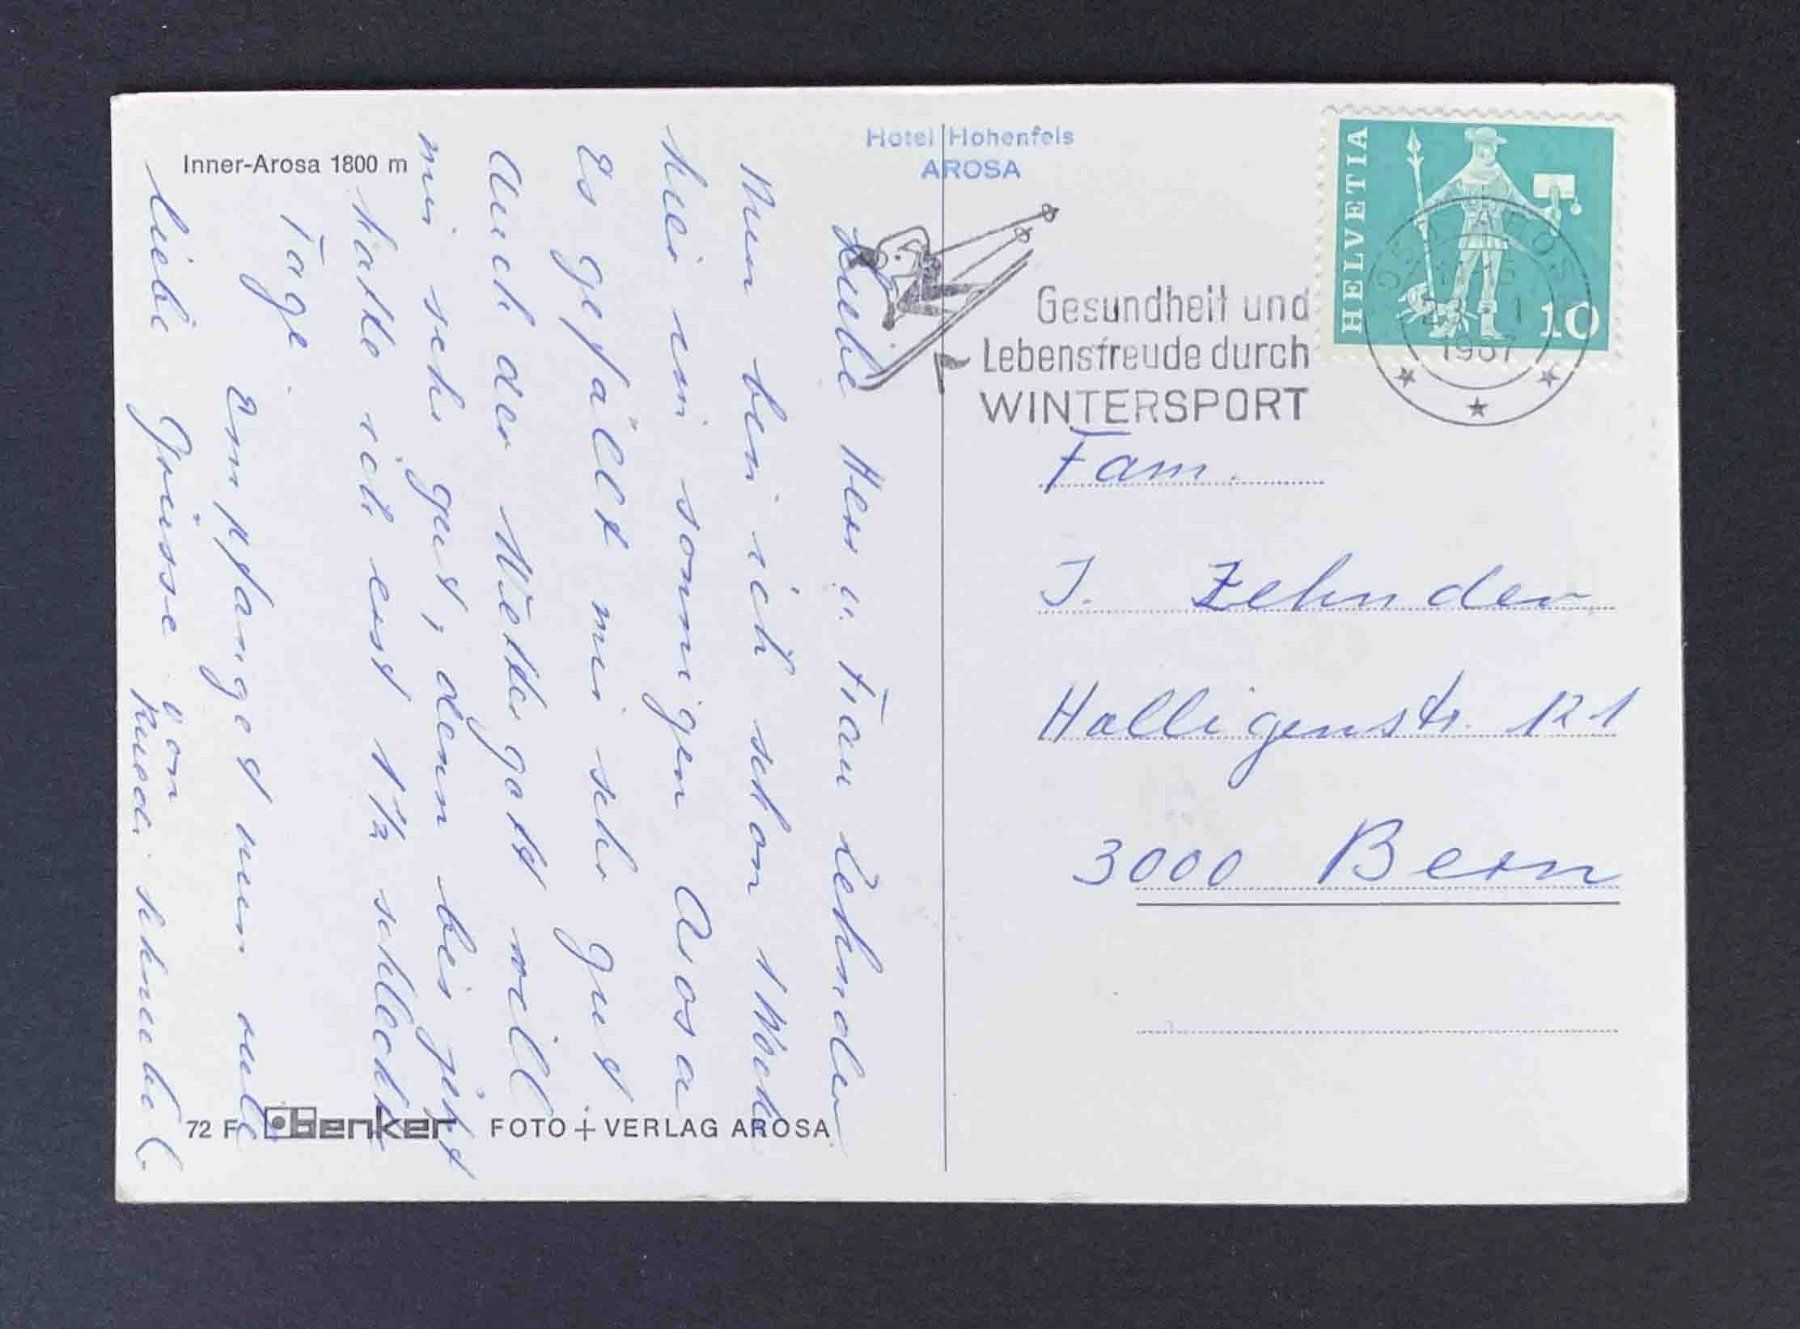 Inner-Arosa 1800 m
Hotel Hohenfels
AROSA
HELVETIA
10
1967
Gesundheit und
Lebensfreude durch
WINTERSPORT
Liebe Herr u. Frau Zehnder
Nun bin ich schon 1 Woche
hier im sonnigen Arosa
Es gefällt mir sehr gut
Auch der Wettergott will
mir sehr gut, denn bis jetzt
hatte ich erst 1½ schlechte
Tage
Empfanget nun alle
liebe Grüsse von
Ruedi
Fam.
J. Zehnder
Halligenstr. 121
3000 Bern
72 F benker FOTO + VERLAG AROSA